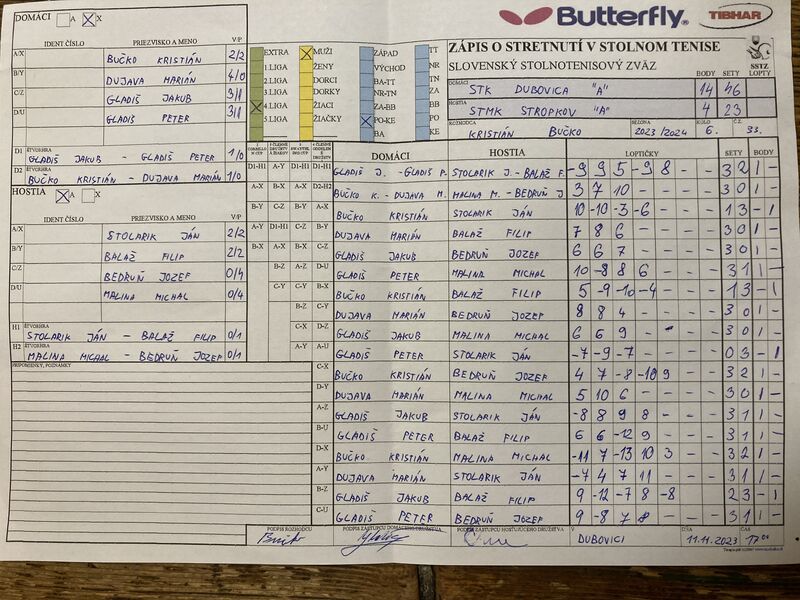 DOMÁCI A X
Butterfly
TIBHAR
IDENT ČÍSLO PRIEZVISKO A MENO V/P
A/X BUČKO KRISTIÁN 2/2
B/Y DUJAVA MARIÁN 4/0
C/Z GLADIŠ JAKUB 3/1
D/U GLADIŠ PETER 3/1
ŠTVORHRA
D1 GLADIŠ JAKUB - GLADIŠ PETER 1/0
ŠTVORHRA
D2 BUČKO KRISTIÁN - DUJAVA MARIÁN 1/0
HOSTIA A X
IDENT ČÍSLO PRIEZVISKO A MENO V/P
A/X STOLARIK JÁN 2/2
B/Y BALAŽ FILIP 2/2
C/Z BEDRUŇ JOZEF 0/4
D/U MALINA MICHAL 0/4
ŠTVORHRA
H1 STOLARIK JÁN - BALAŽ FILIP 0/1
ŠTVORHRA
H2 MALINA MICHAL - BEDRUŇ JOZEF 0/1
PRIPOMIENKY, POZNÁMKY
EXTRA MUŽI ZÁPAD TT
1.LIGA ŽENY VÝCHOD NR
2.LIGA DORCI BA-TT TN
3.LIGA DORKY NR-TN ZA
4.LIGA ŽIACI ZA-BB BB
5.LIGA ŽIAČKY PO-KE PO
BA KE
ZÁPIS O STRETNUTÍ V STOLNOM TENISE
SLOVENSKÝ STOLNOTENISOVÝ ZVÄZ
SSTZ
BODY SETY LOPTY
DOMÁCI STK DUBOVICA "A" 14 46
HOSTIA STMK STROPKOV "A" 4 23
ROZHODCA KRISTIÁN BUČKO SEZÓNA 2023/2024 KOLO 6. Č.Z. 33.
DOMÁCI HOSTIA LOPTIČKY SETY BODY
D1-H1 A-Y D1-H1 D1-H1 GLADIŠ J. - GLADIŠ P. STOLARIK J. - BALAŽ F. -9 9 5 -9 8 - - 3 2 1 -
A-X B-X A-X D2-H2 BUČKO K. - DUJAVA M. MALINA M. - BEDRUŇ J 3 7 10 - - - - 3 0 1 -
B-Y C-Z B-Y A-X BUČKO KRISTIÁN STOLARIK JÁN 10 -10 -3 -6 - - - 1 3 - 1
A-Y D1-H1 C-Z B-Y DUJAVA MARIÁN BALAŽ FILIP 7 8 6 - - - - 3 0 1 -
B-X A-X B-X C-Z GLADIŠ JAKUB BEDRUŇ JOZEF 6 6 7 - - - - 3 0 1 -
B-Z A-Z D-U GLADIŠ PETER MALINA MICHAL 10 -8 8 6 - - - 3 1 1 -
C-Y C-Y B-X BUČKO KRISTIÁN BALAŽ FILIP 5 -9 -10 -4 - - - 1 3 - 1
B-Z C-Y DUJAVA MARIÁN BEDRUŇ JOZEF 8 8 4 - - - - 3 0 1 -
C-X D-Z GLADIŠ JAKUB MALINA MICHAL 6 6 9 - - - - 3 0 1 -
A-Y A-U GLADIŠ PETER STOLARIK JÁN -7 -9 -7 - - - - 0 3 - 1
C-X BUČKO KRISTIÁN BEDRUŇ JOZEF 4 7 -8 -10 9 - - 3 2 1 -
D-Y DUJAVA MARIÁN MALINA MICHAL 5 10 6 - - - - 3 0 1 -
A-Z GLADIŠ JAKUB STOLARIK JÁN -8 8 9 8 - - - 3 1 1 -
B-U GLADIŠ PETER BALAŽ FILIP 6 6 -12 9 - - - 3 1 1 -
D-X BUČKO KRISTIÁN MALINA MICHAL -11 7 -13 10 3 - - 3 2 1 -
A-Y DUJAVA MARIÁN STOLARIK JÁN -7 4 7 11 - - - 3 1 1 -
B-Z GLADIŠ JAKUB BALAŽ FILIP 9 -12 -7 8 -8 - - 2 3 - 1
C-U GLADIŠ PETER BEDRUŇ JOZEF 9 -8 7 8 - - - 3 1 1 -
PODPIS ROZHODCU PODPIS ZÁSTUPCU DOMÁCEHO DRUŽSTVA PODPIS ZÁSTUPCU HOSŤUJÚCEHO DRUŽSTVA V DUBOVICI DŇA 11.11.2023 ČAS 17 00